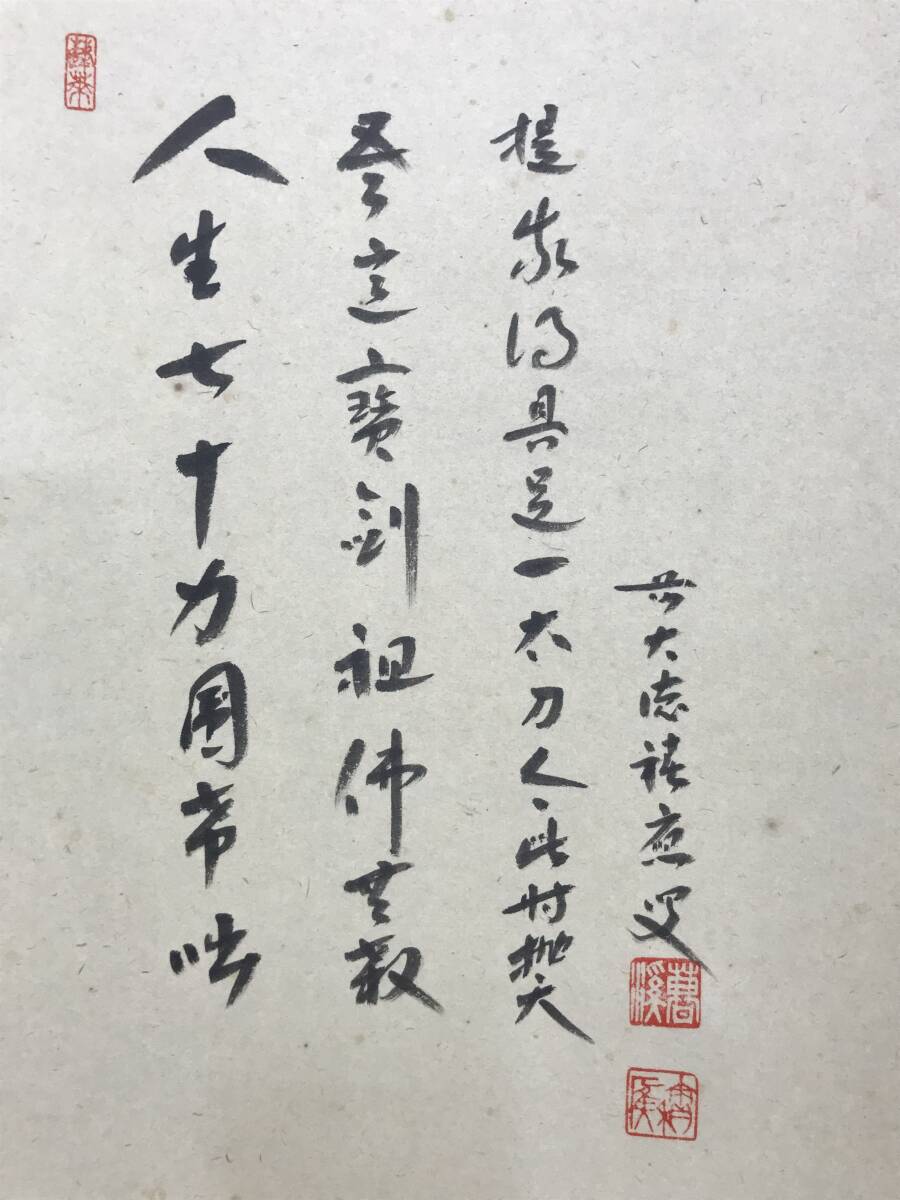 人生七十力圍希咄
吾這寶劍祖佛共殺
提我得具足一太刀今此時抛天
大 叟